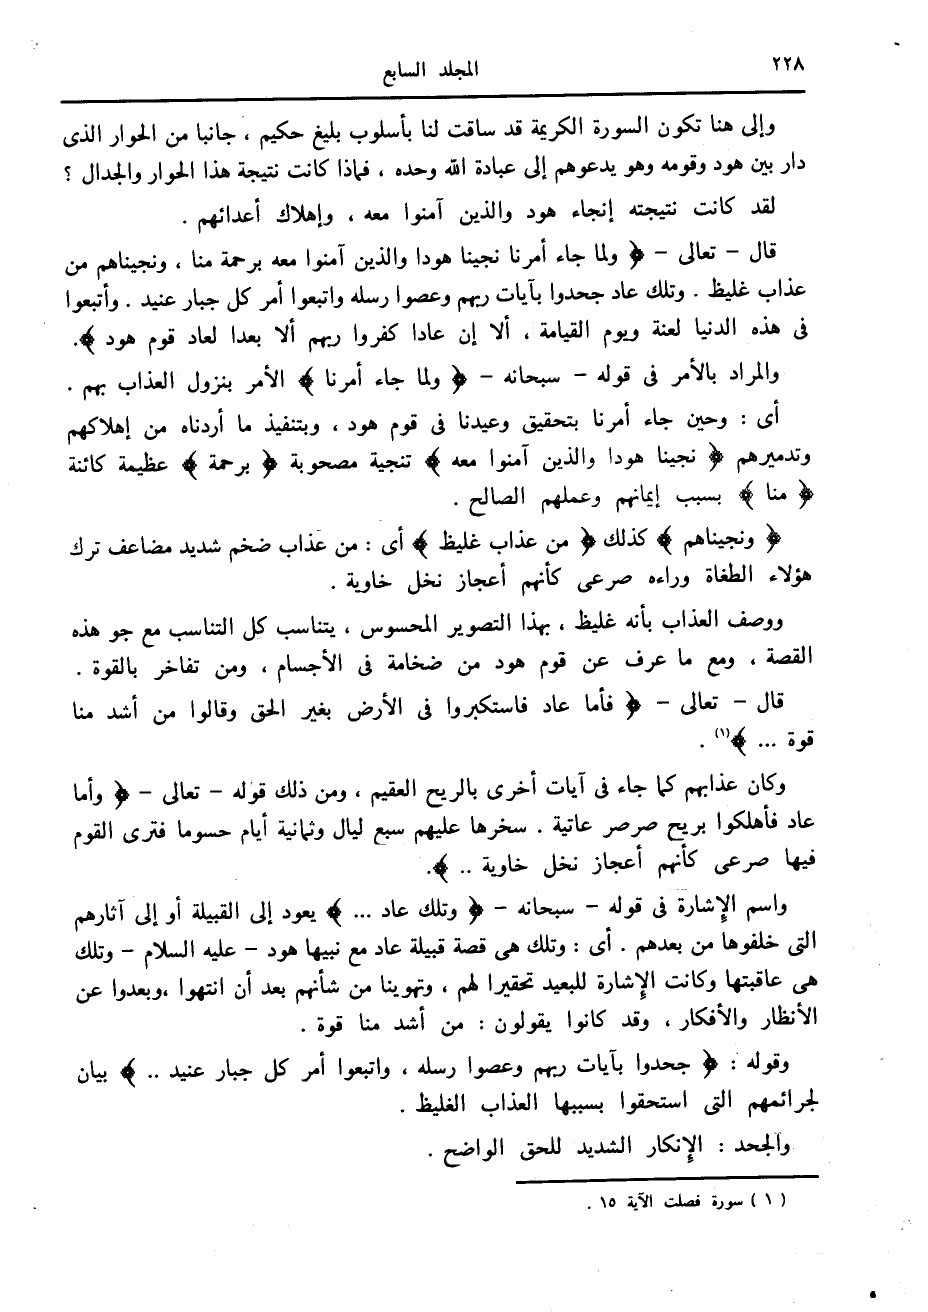 ٢٢٨
المجلد السابع
وإلى هنا تكون السورة الكريمة قد ساقت لنا بأسلوب بليغ حكيم ، جانبا من الحوار الذى
دار بين هود وقومه وهو يدعوهم إلى عبادة الله وحده ، فماذا كانت نتيجة هذا الحوار والجدال ؟
لقد كانت نتيجته إنجاء هود والذين آمنوا معه ، وإهلاك أعدائهم .
قال – تعالى – ﴿ ولما جاء أمرنا نجينا هودا والذين آمنوا معه برحمة منا ، ونجيناهم من
عذاب غليظ . وتلك عاد جحدوا بآيات ربهم وعصوا رسله واتبعوا أمر كل جبار عنيد . وأتبعوا
فى هذه الدنيا لعنة ويوم القيامة ، ألا إن عادا كفروا ربهم ألا بعدا لعاد قوم هود ﴾.
والمراد بالأمر فى قوله – سبحانه – ﴿ ولما جاء أمرنا ﴾ الأمر بنزول العذاب بهم .
أى : وحين جاء أمرنا بتحقيق وعيدنا فى قوم هود ، وبتنفيذ ما أردناه من إهلاكهم
وتدميرهم ﴿ نجينا هودا والذين آمنوا معه ﴾ تنجية مصحوبة ﴿ برحمة ﴾ عظيمة كائنة
﴿ منا ﴾ بسبب إيمانهم وعملهم الصالح .
﴿ ونجيناهم ﴾ كذلك ﴿ من عذاب غليظ ﴾ أى : من عذاب ضخم شديد مضاعف ترك
هؤلاء الطغاة وراءه صرعى كأنهم أعجاز نخل خاوية .
ووصف العذاب بأنه غليظ ، بهذا التصوير المحسوس ، يتناسب كل التناسب مع جو هذه
القصة ، ومع ما عرف عن قوم هود من ضخامة فى الأجسام ، ومن تفاخر بالقوة .
قال – تعالى – ﴿ فأما عاد فاستكبروا فى الأرض بغير الحق وقالوا من أشد منا
قوة ... ﴾(١) .
وكان عذابهم كما جاء فى آيات أخرى بالريح العقيم ، ومن ذلك قوله – تعالى – ﴿ وأما
عاد فأهلكوا بريح صرصر عاتية . سخرها عليهم سبع ليال وثمانية أيام حسوما فترى القوم
فيها صرعى كأنهم أعجاز نخل خاوية .. ﴾.
واسم الإشارة فى قوله – سبحانه – ﴿ وتلك عاد ... ﴾ يعود إلى القبيلة أو إلى آثارهم
التى خلفوها من بعدهم . أى : وتلك هى قصة قبيلة عاد مع نبيها هود – عليه السلام – وتلك
هى عاقبتها وكانت الإشارة للبعيد تحقيرا لهم ، وتهوينا من شأنهم بعد أن انتهوا ،وبعدوا عن
الأنظار والأفكار ، وقد كانوا يقولون : من أشد منا قوة .
وقوله : ﴿ جحدوا بآيات ربهم وعصوا رسله ، واتبعوا أمر كل جبار عنيد .. ﴾ بيان
لجرائمهم التى استحقوا بسببها العذاب الغليظ .
والجحد : الإنكار الشديد للحق الواضح .
(١) سورة فصلت الآية ١٥ .